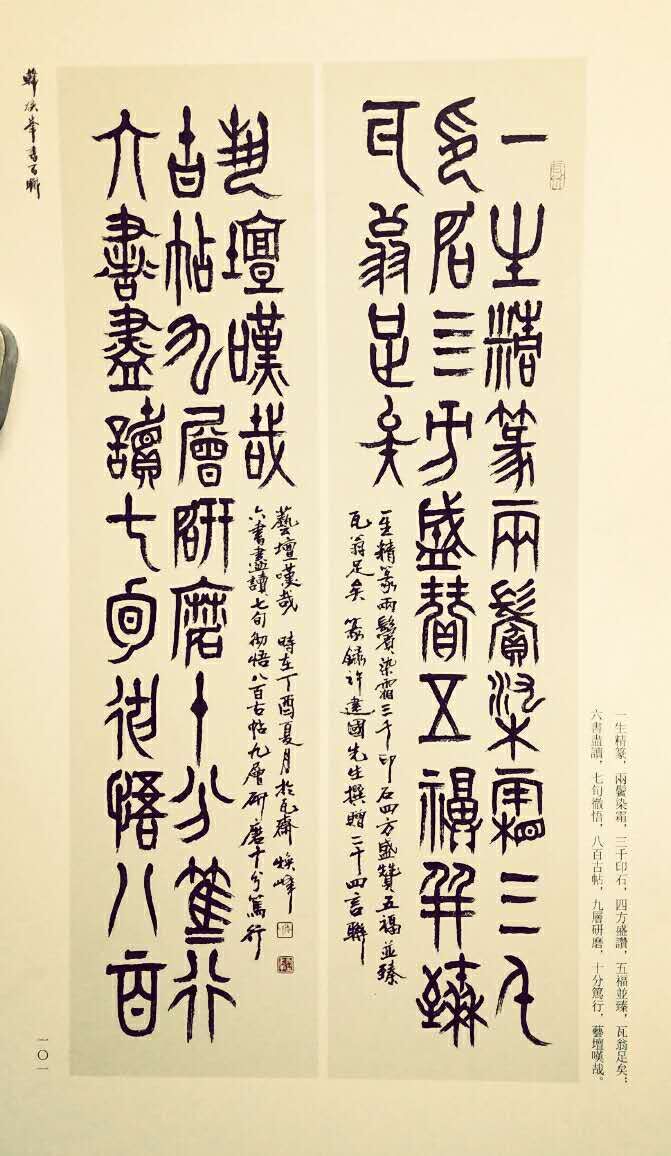 一生精篆兩鬢染霜三千
印石四方盛贊五福并臻
瓦翁足矣
一生精篆兩鬢染霜三千印石四方盛贊五福並臻
瓦翁足矣 篆錄許建國先生撰贈二十四言聯
六書盡讀七旬徹悟八百
古帖九層研磨十分篤行
藝壇嘆哉
六書盡讀七旬彻悟八百古帖九層研磨十分篤行
藝壇嘆哉 時在丁酉夏月於瓦齋 煥峰
一生精篆,兩鬢染霜,三千印石,四方盛讚,五福並臻,瓦翁足矣;
六書盡讀,七旬徹悟,八百古帖,九層研磨,十分篤行,藝壇嘆哉。
韓煥峰書百聯
一〇一